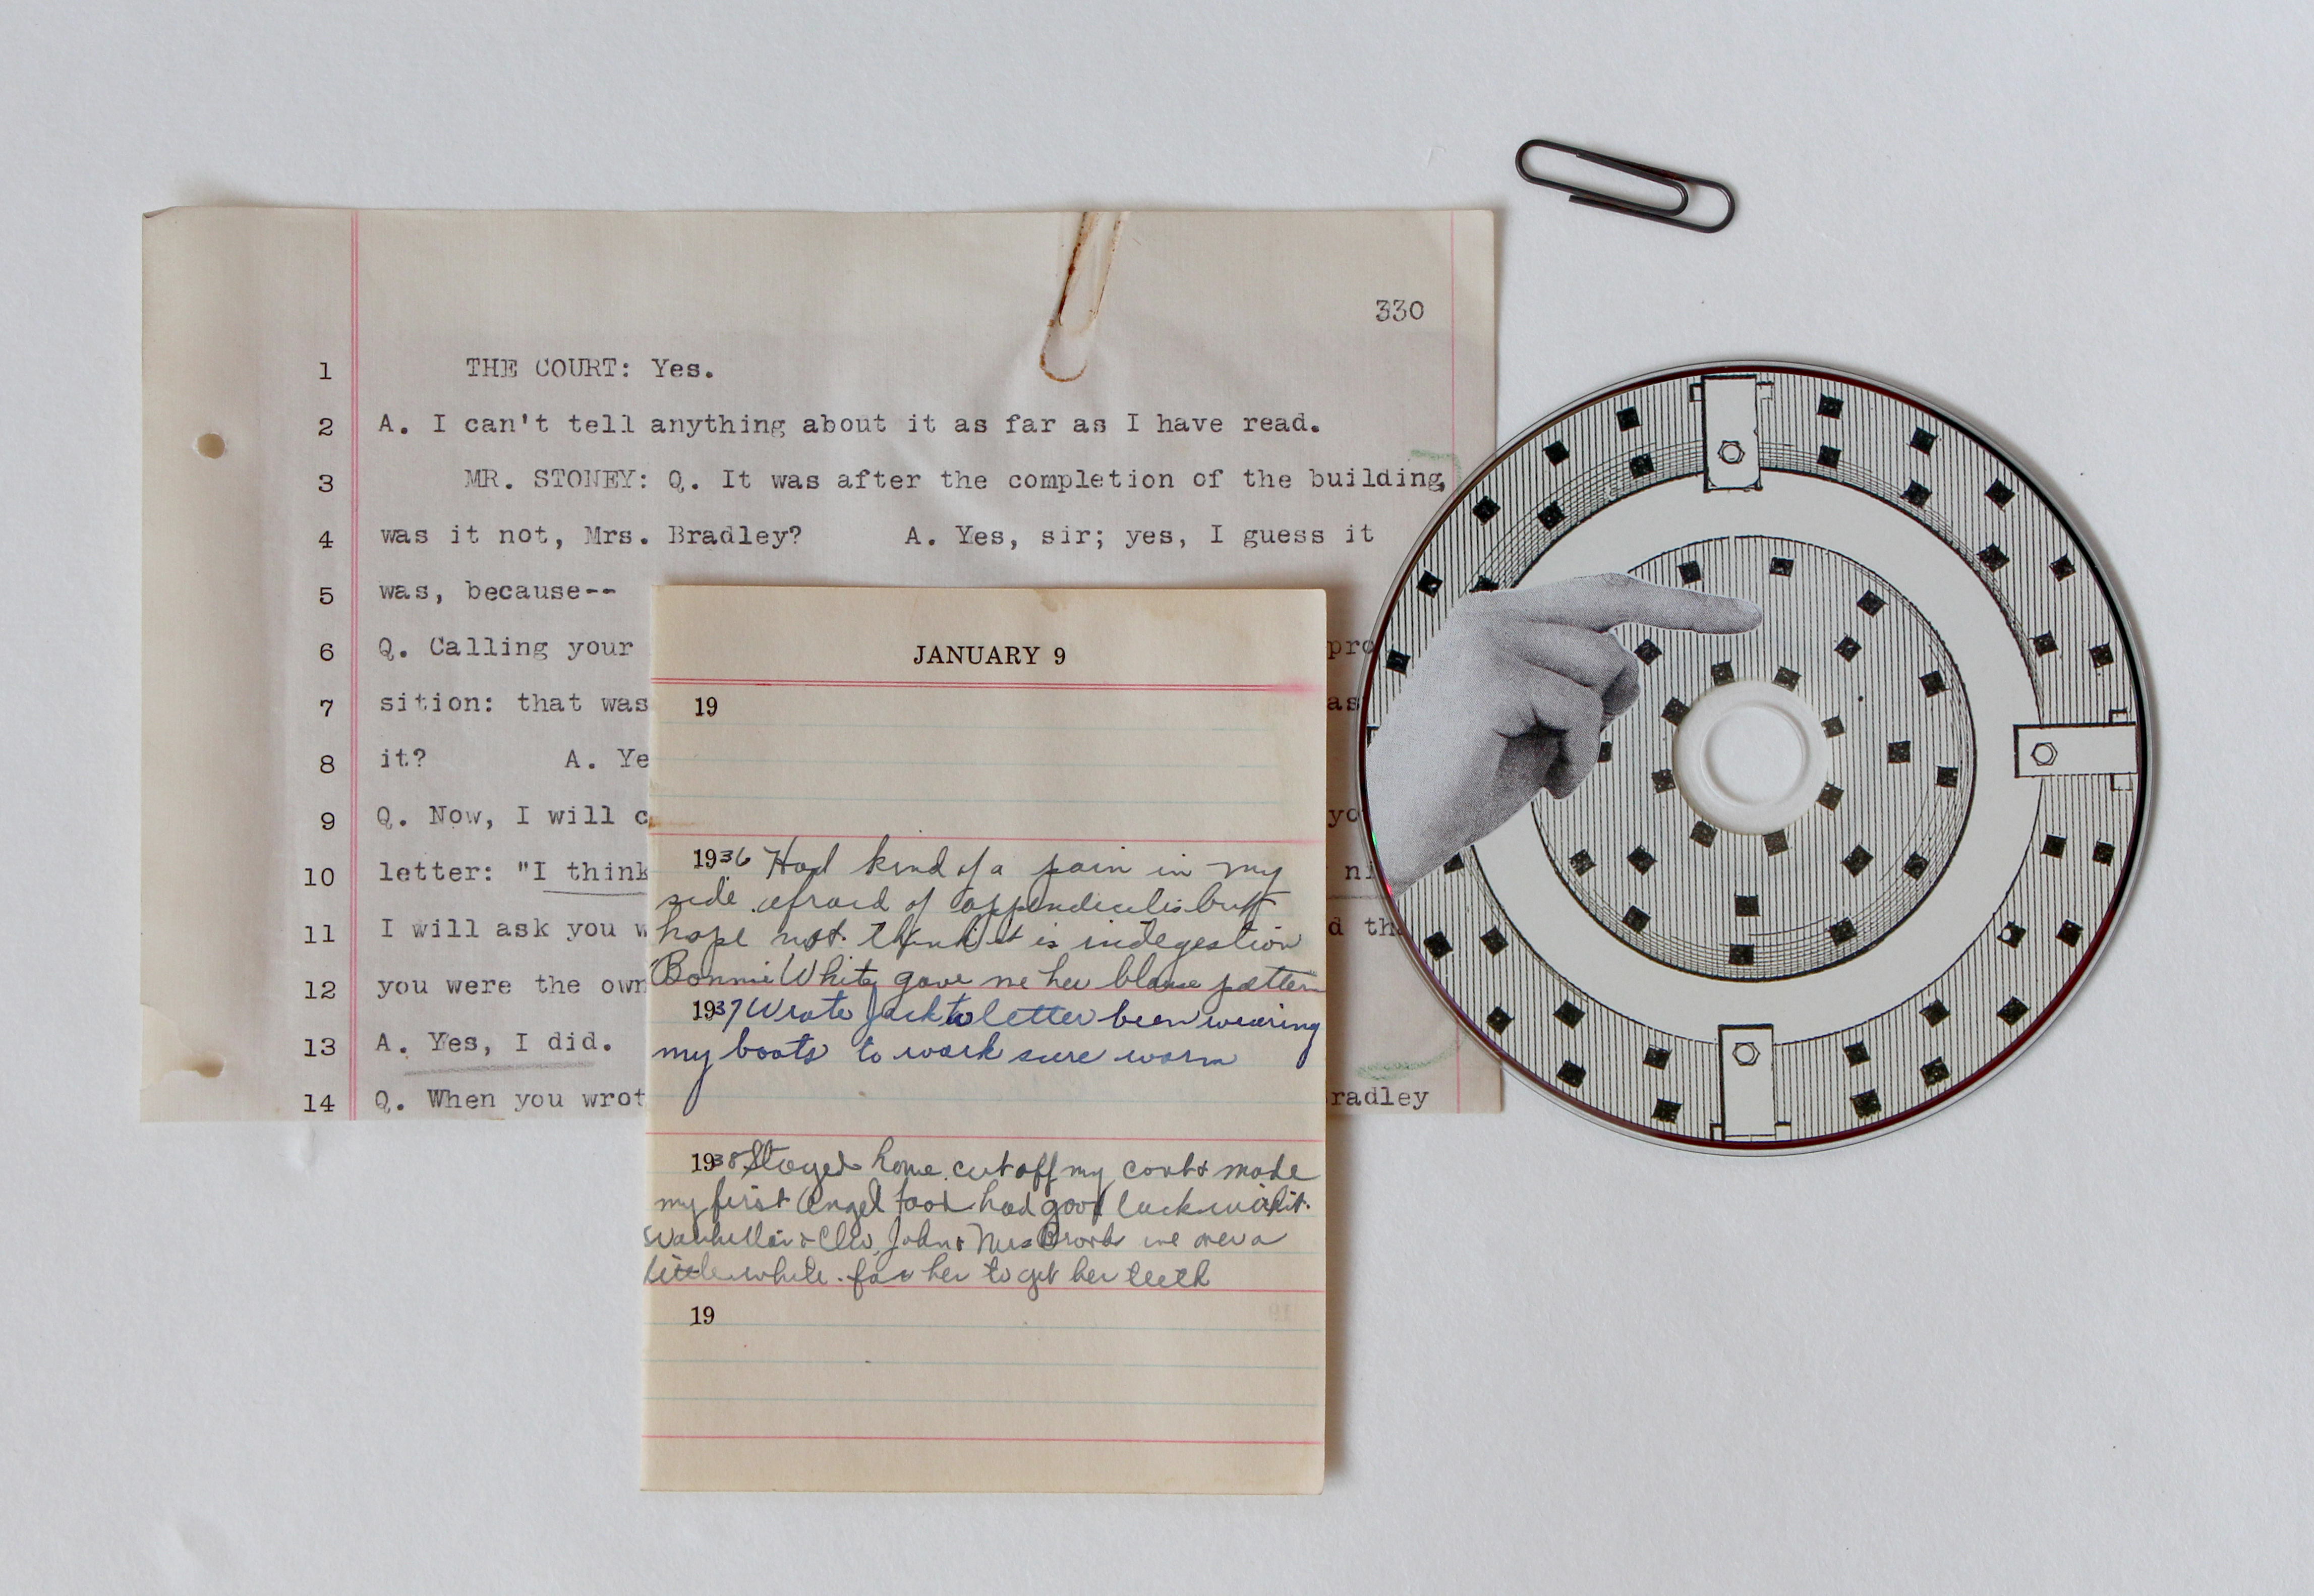 330
1 THE COURT: Yes.
2 A. I can't tell anything about it as far as I have read.
3 MR. STONEY: Q. It was after the completion of the building,
4 was it not, Mrs. Bradley? A. Yes, sir; yes, I guess it
5 was, because--
6 Q. Calling your pro
7 sition: that was as
8 it? A. Ye
9 Q. Now, I will c yo
10 letter: "I think ni
11 I will ask you w d th
12 you were the own
13 A. Yes, I did.
14 Q. When you wrot radley
JANUARY 9
19
1936 Had kind of a pain in my
side. afraid of appendicitis but
hope not. think it is indegestion
Bonnie White gave me her blouse pattern
1937 Wrote Jack a letter been wearing
my boots to work sure warm
1938 Stayed home. cut off my coat & made
my first Angel food had good luck with it.
& Cleo, John & Mrs over a
little while. for her to get her teeth
19